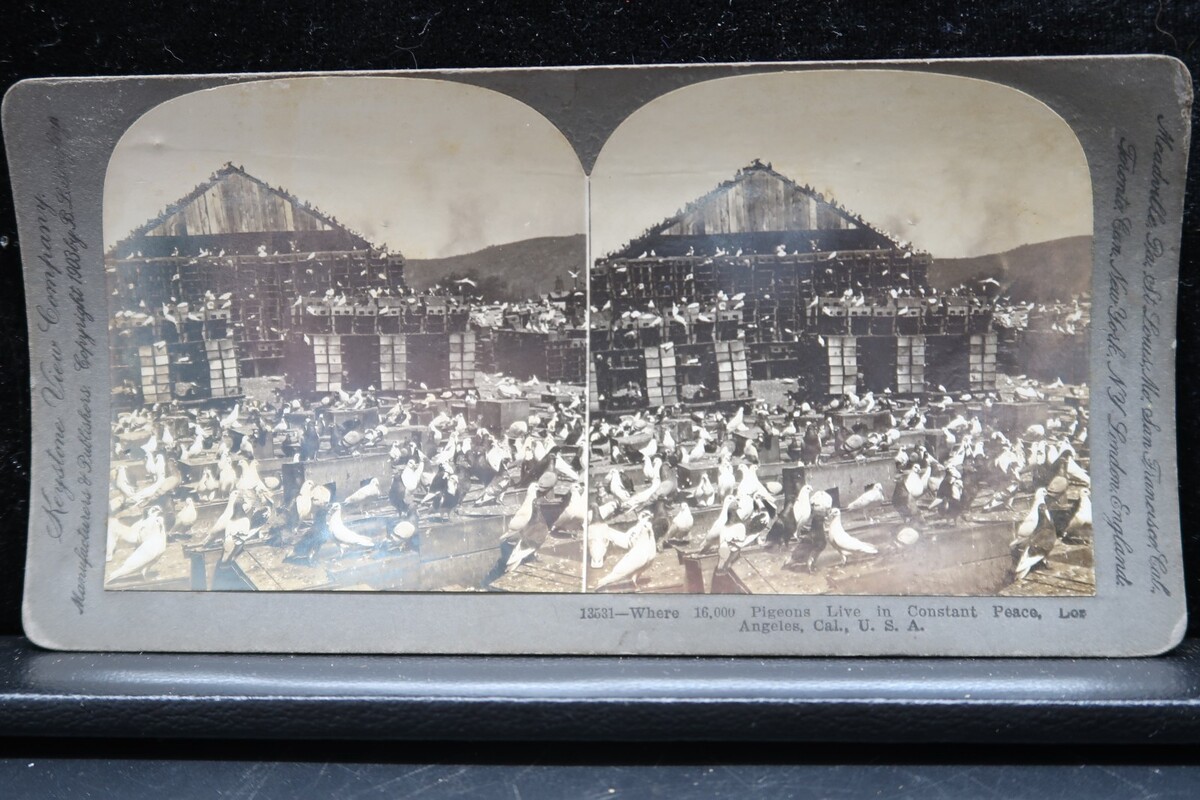 Keystone View Company,
Manufacturers & Publishers. Copyright 1903 by B.
13531—Where 16,000 Pigeons Live in Constant Peace, Los
Angeles, Cal., U. S. A.
Meadville, Pa., St. Louis, Mo., San Francisco, Cal.,
Toronto, Can. New York, N.Y. London, England.